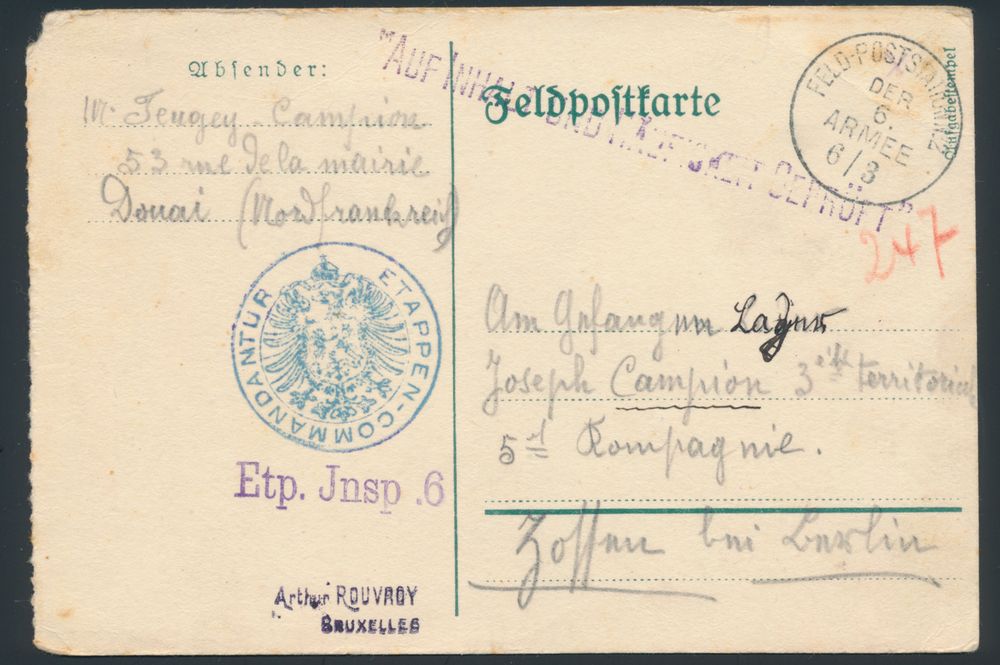 Absender:
Mr Feugey-Campion
53 rue de la mairie
Douai (Nordfrankreich)
ETAPPEN-COMMANDANTUR
Etp. Jnsp .6
Arthur ROUVROY
BRUXELLES
"AUF INHALT UND ZULÄSSIGKEIT GEPRÜFT"
Feldpostkarte
FELD-POSTSTATION
DER
6.
ARMEE
6/3
Aufgabestempel
247
Am Gefangnen Lager
Joseph Campion 3eite territorial
5t Kompagnie.
Zossen bei Berlin